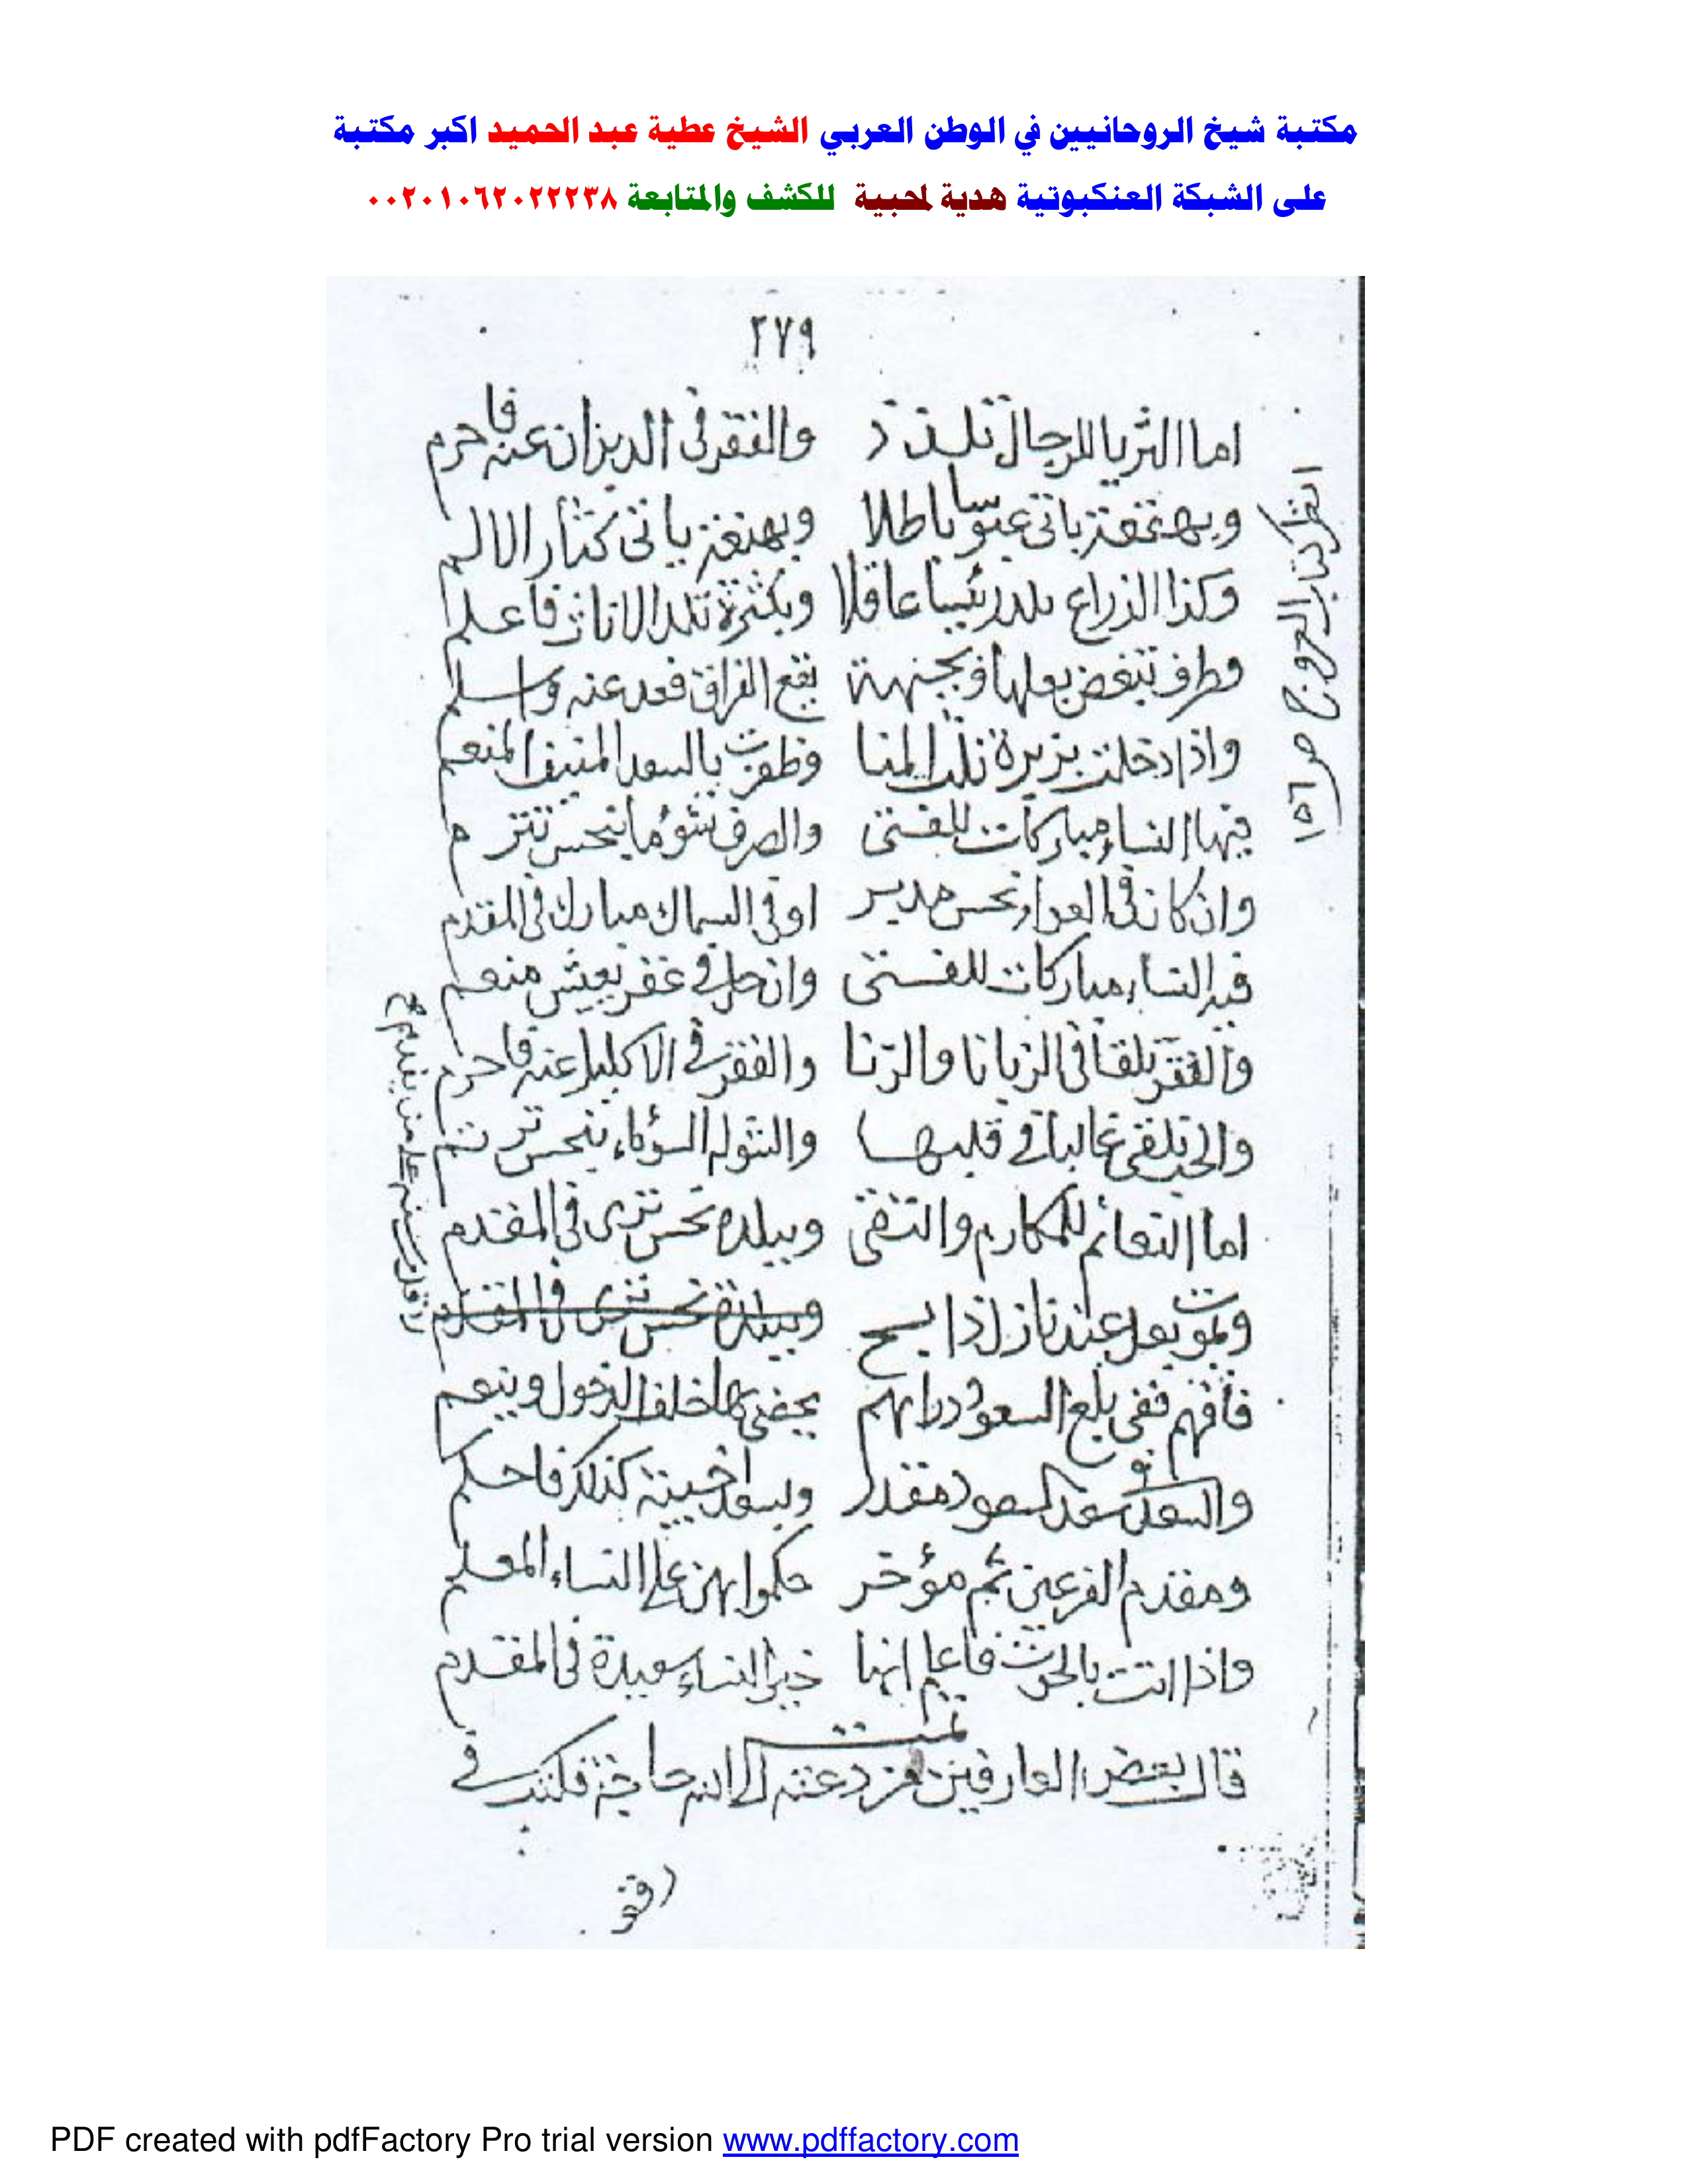 مكتبة شيخ الروحانيين في الوطن العربي الشيخ عطية عبد الحميد اكبر مكتبة
على الشبكة العنكبوتية هدية لمحبية للكشف والمتابعة ٠٠٢٠١٠٦٢٠٢٢٢٣٨
٢٧٩
اما الثريا للرجال تلذذ والفقر فى الدبران عنه فاحرم
وبهقعة ياتى عبوسا باطلا وبهنعة ياتى كثار الالم
وكذا الذراع تلد رئيسا عاقلا وبكثرة تلد الاناث فاعلم
وطرف تبغض بعلها وبجبهة يقع الفراق فعد عنه واسلم
واذا دخلت بزبرة نلت المنا وظفرت بالسعد المنيف المنعم
فيها النساء مباركات للفتى والصرف شؤما ينحس
وان كان فى العواء نحس مدبر او فى السماك مبارك فى المقدم
فيه النساء مباركات للفتى وان حل فى غفر بعيش منعم
والفقر تلقا فى الزبانا والزنا والفقر فى الاكليل عنه فاحرم
والحب تلقى غالبا فى قلبها والشوله السؤاء بنحس
اما النعائم للمكارم والتقى وببلده نحس ترى فى المقدم
وتموت بعل عند نازل ذابح
فافهم ففى بلع السعود دراهم يحضى بها خلف الدخول وينعم
والسعد فى سعد السعود مقدر وبسعد اخبية كذلك فاحكم
ومقدم الفرعين ثم مؤخر حكموا بهن على النساء المعلم
واذا اتت بالحوت فاعلم انها خير النساء سعيدة فى المقدم
تمت
قال بعض العارفين من دعته الى الله حاجة فليكتب فى
رقع
انظر كتاب البروج ص ١٥٦
PDF created with pdfFactory Pro trial version www.pdffactory.com